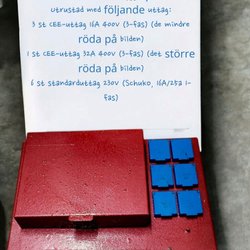 utrustad med följande uttag:
3 st CEE-uttag 16A 400V (3-fas) (de mindre
röda på bilden)
1 st CEE-uttag 32A 400V (3-fas) (det större
röda på bilden)
6 st standarduttag 230V (Schuko, 16A/25a 1-
fas)